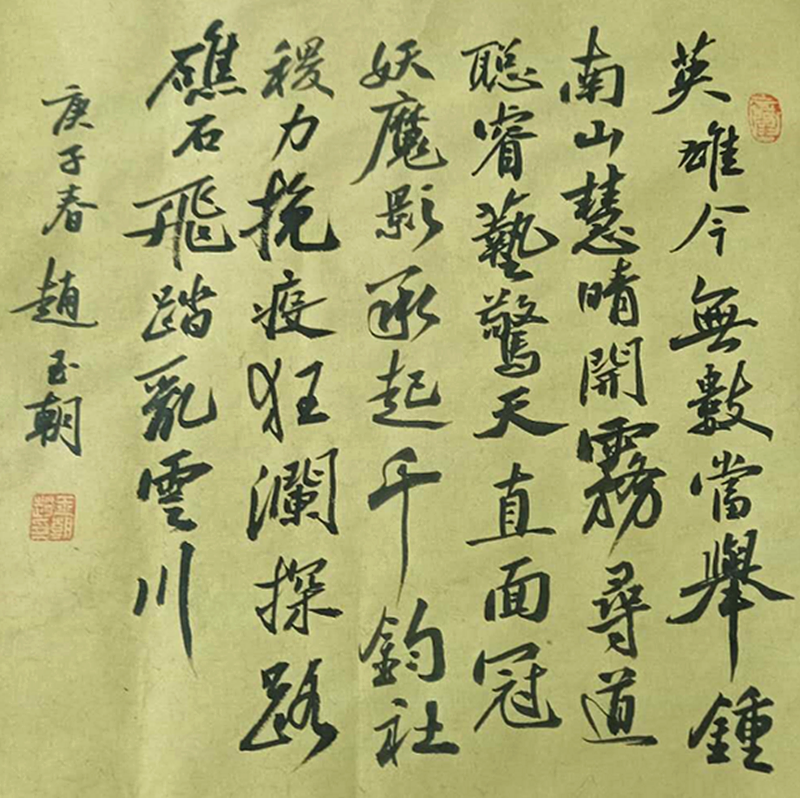 英雄今無數當舉鍾
南山慧晴開霧尋道
聰睿藝驚天直面冠
妖魔影承起千鈞社
稷力挽疫狂瀾探路
礁石飛踏亂雲川
庚子春 趙玉朝